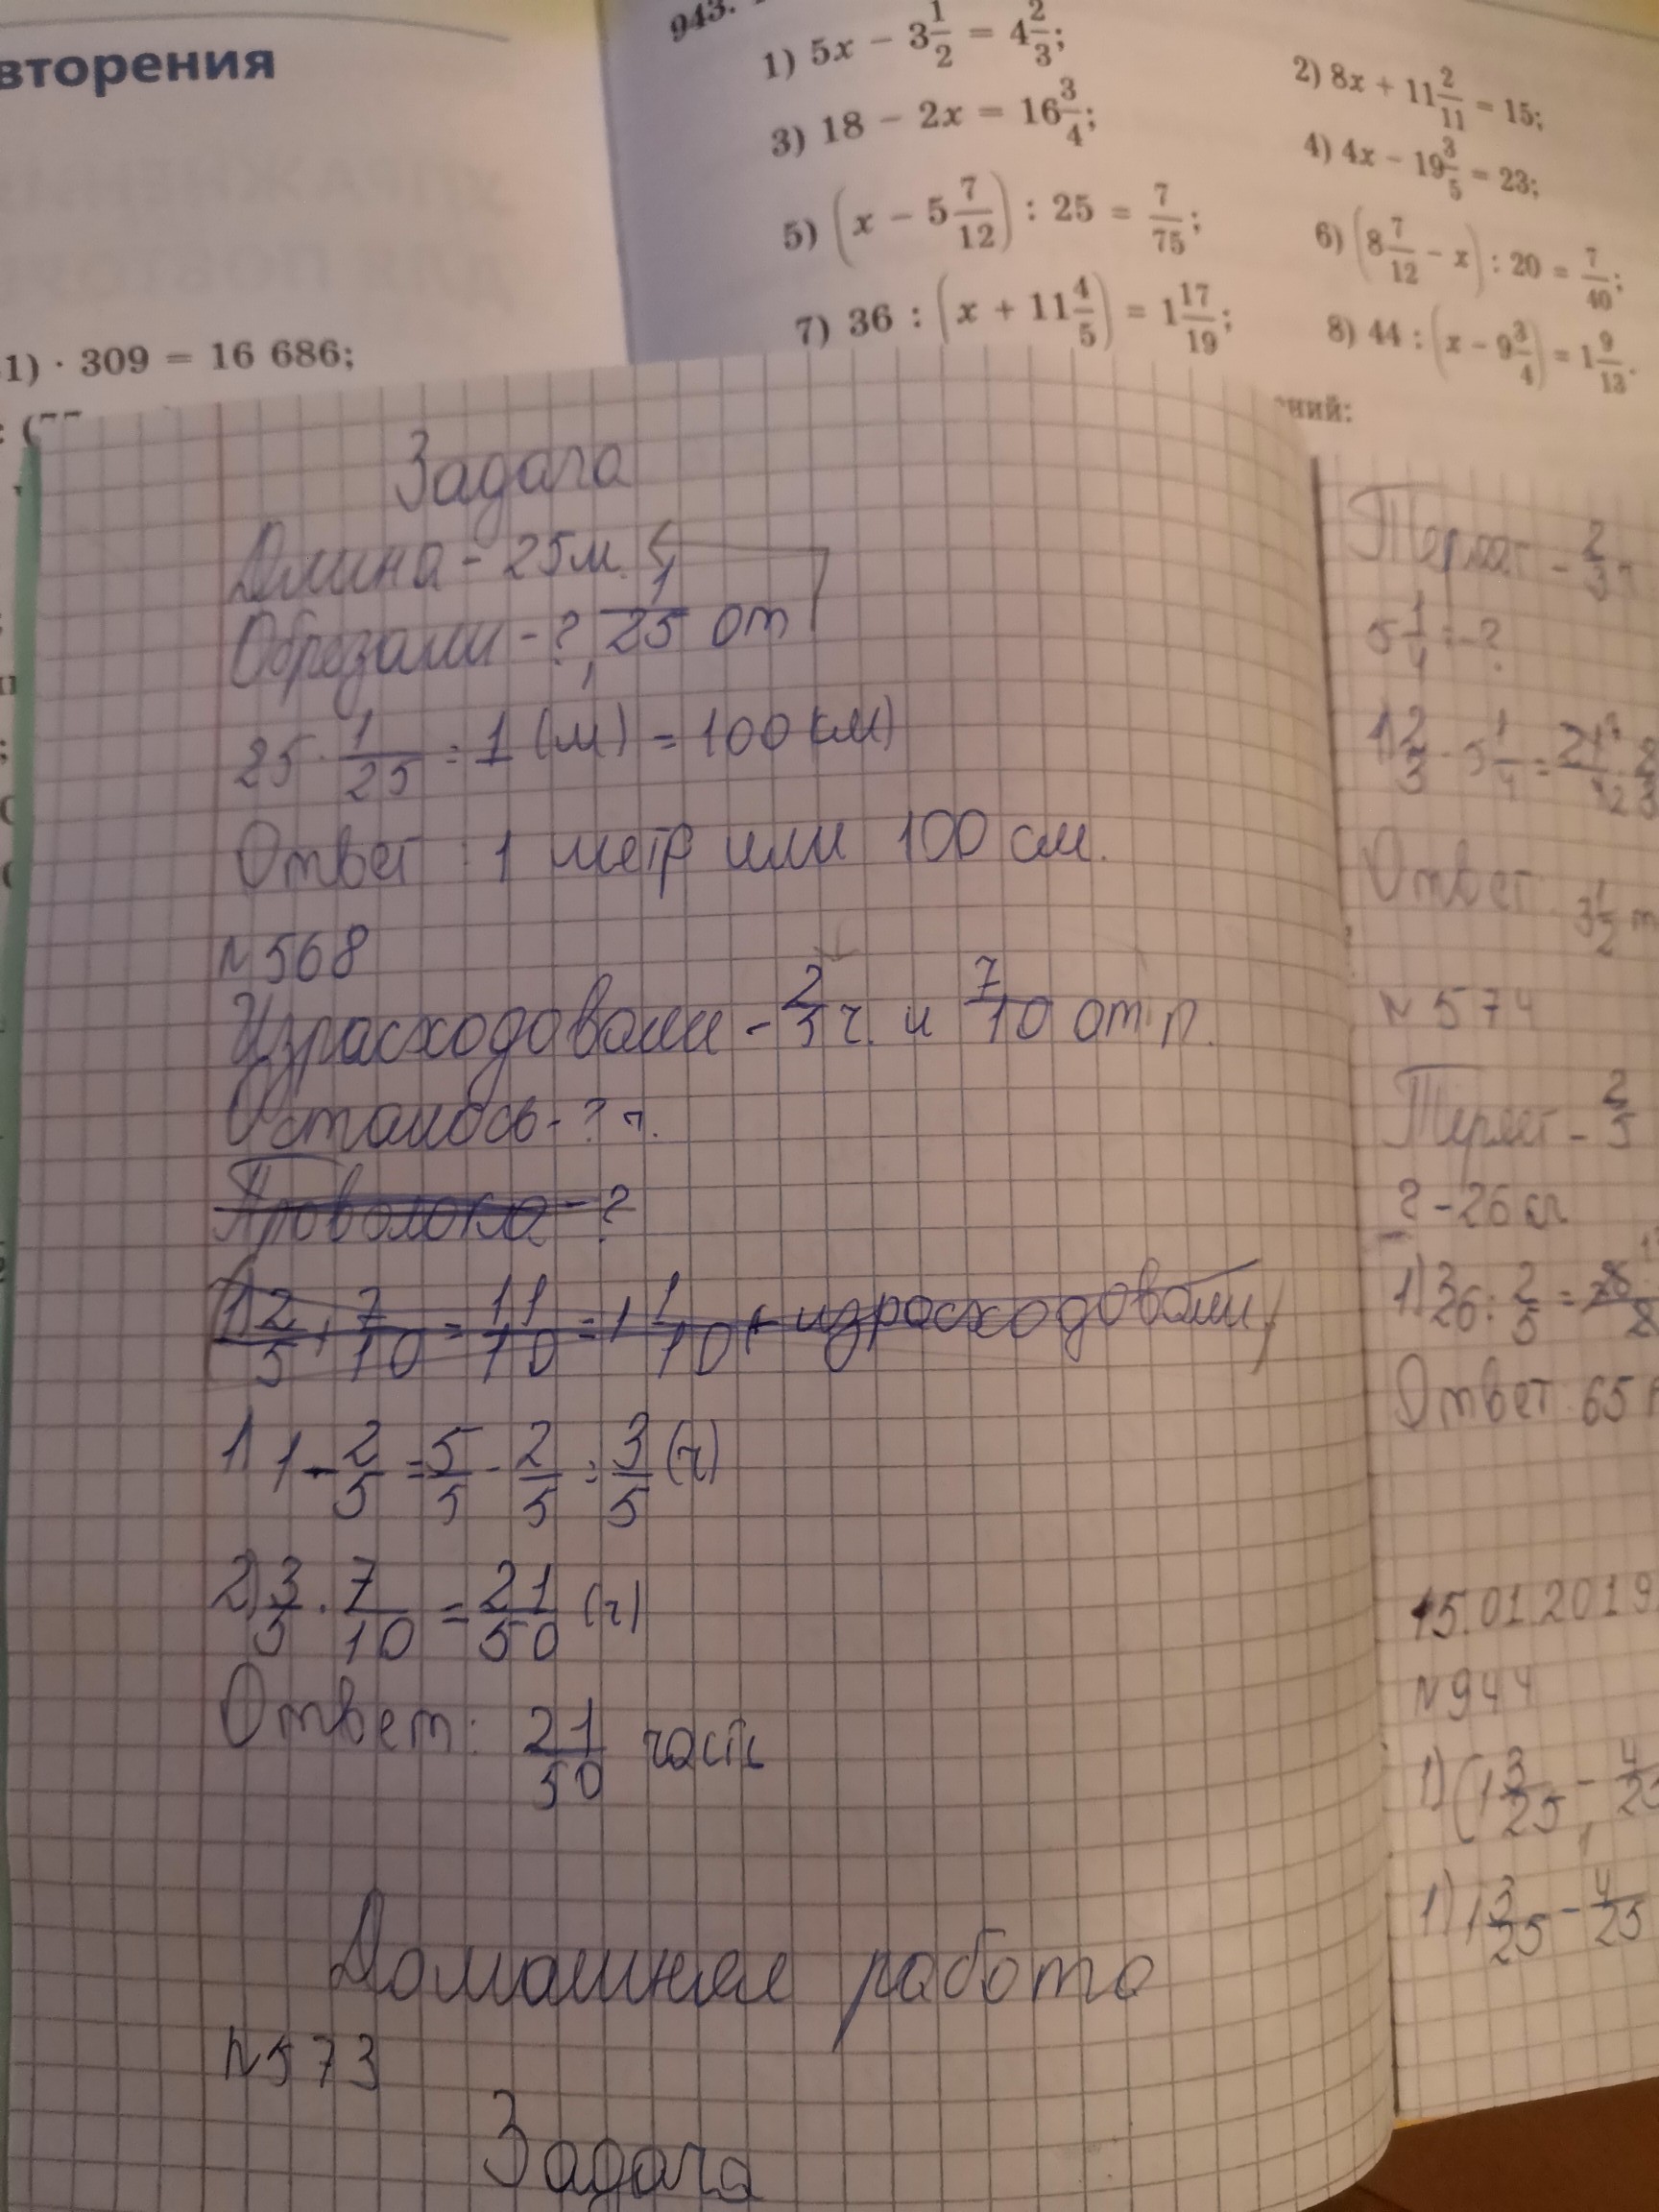 вторения
1) · 309 = 16 686;
943.
1) 5x − 3 1/2 = 4 2/3;
2) 8x + 11 2/11 = 15;
3) 18 − 2x = 16 3/4;
4) 4x − 19 3/5 = 23;
5) (x − 5 7/12) : 25 = 7/75;
6) (8 7/12 − x) : 20 = 7/40;
7) 36 : (x + 11 4/5) = 1 17/19;
8) 44 : (x − 9 3/4) = 1 9/13.
ний:
Задача
Длина - 25 м.
Обрезали - ?, 1/25 от
25 · 1/25 = 1 (м) = 100 см)
Ответ: 1 метр или 100 см.
N 568
Израсходовали - 2/5 ч. и 7/10 от п.
Осталось - ? ч.
Проволока - ?
1) 2/5 + 7/10 = 11/10 = 1 1/10 - израсходовали
1) 1 - 2/5 = 5/5 - 2/5 = 3/5 (ч)
2) 3/5 · 7/10 = 21/50 (ч)
Ответ: 21/50 часть
Домашняя работа
N 573
Задача
Теряет - 2/3
5 1/4 - ?
1) 2/3 · 5 1/4 = 21/4 · 2/3
Ответ: 3 1/2 т
N 574
Теряет - 2/5
? - 26 кг
1) 26 : 2/5 =
Ответ: 65
15.01.2019
N 944
1) (1 3/25 - 4/25
1) 1 3/25 - 4/25